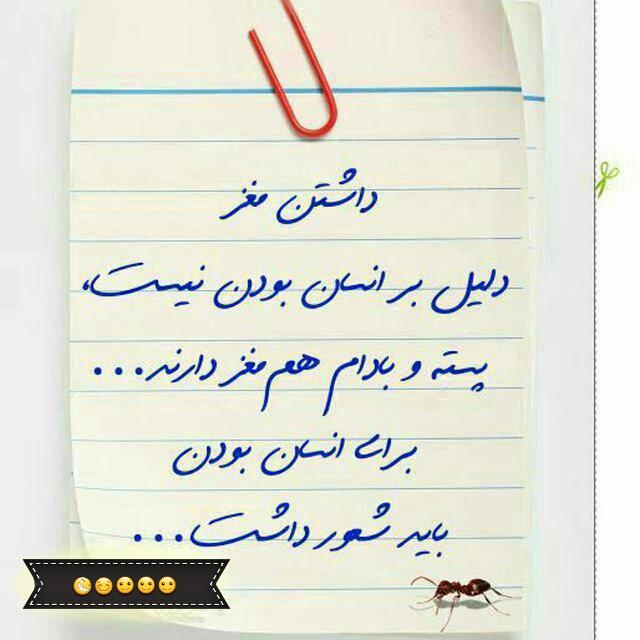 داشتن مغز
دلیل بر انسان بودن نیست،
پسته و بادام هم مغز دارند...
برای انسان بودن
باید شعور داشت...